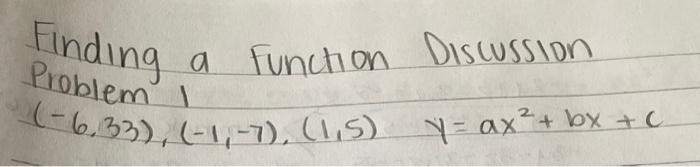 Finding a Function Discussion
Problem 1
(-6,33), (-1,-7), (1,5) y = ax² + bx + c